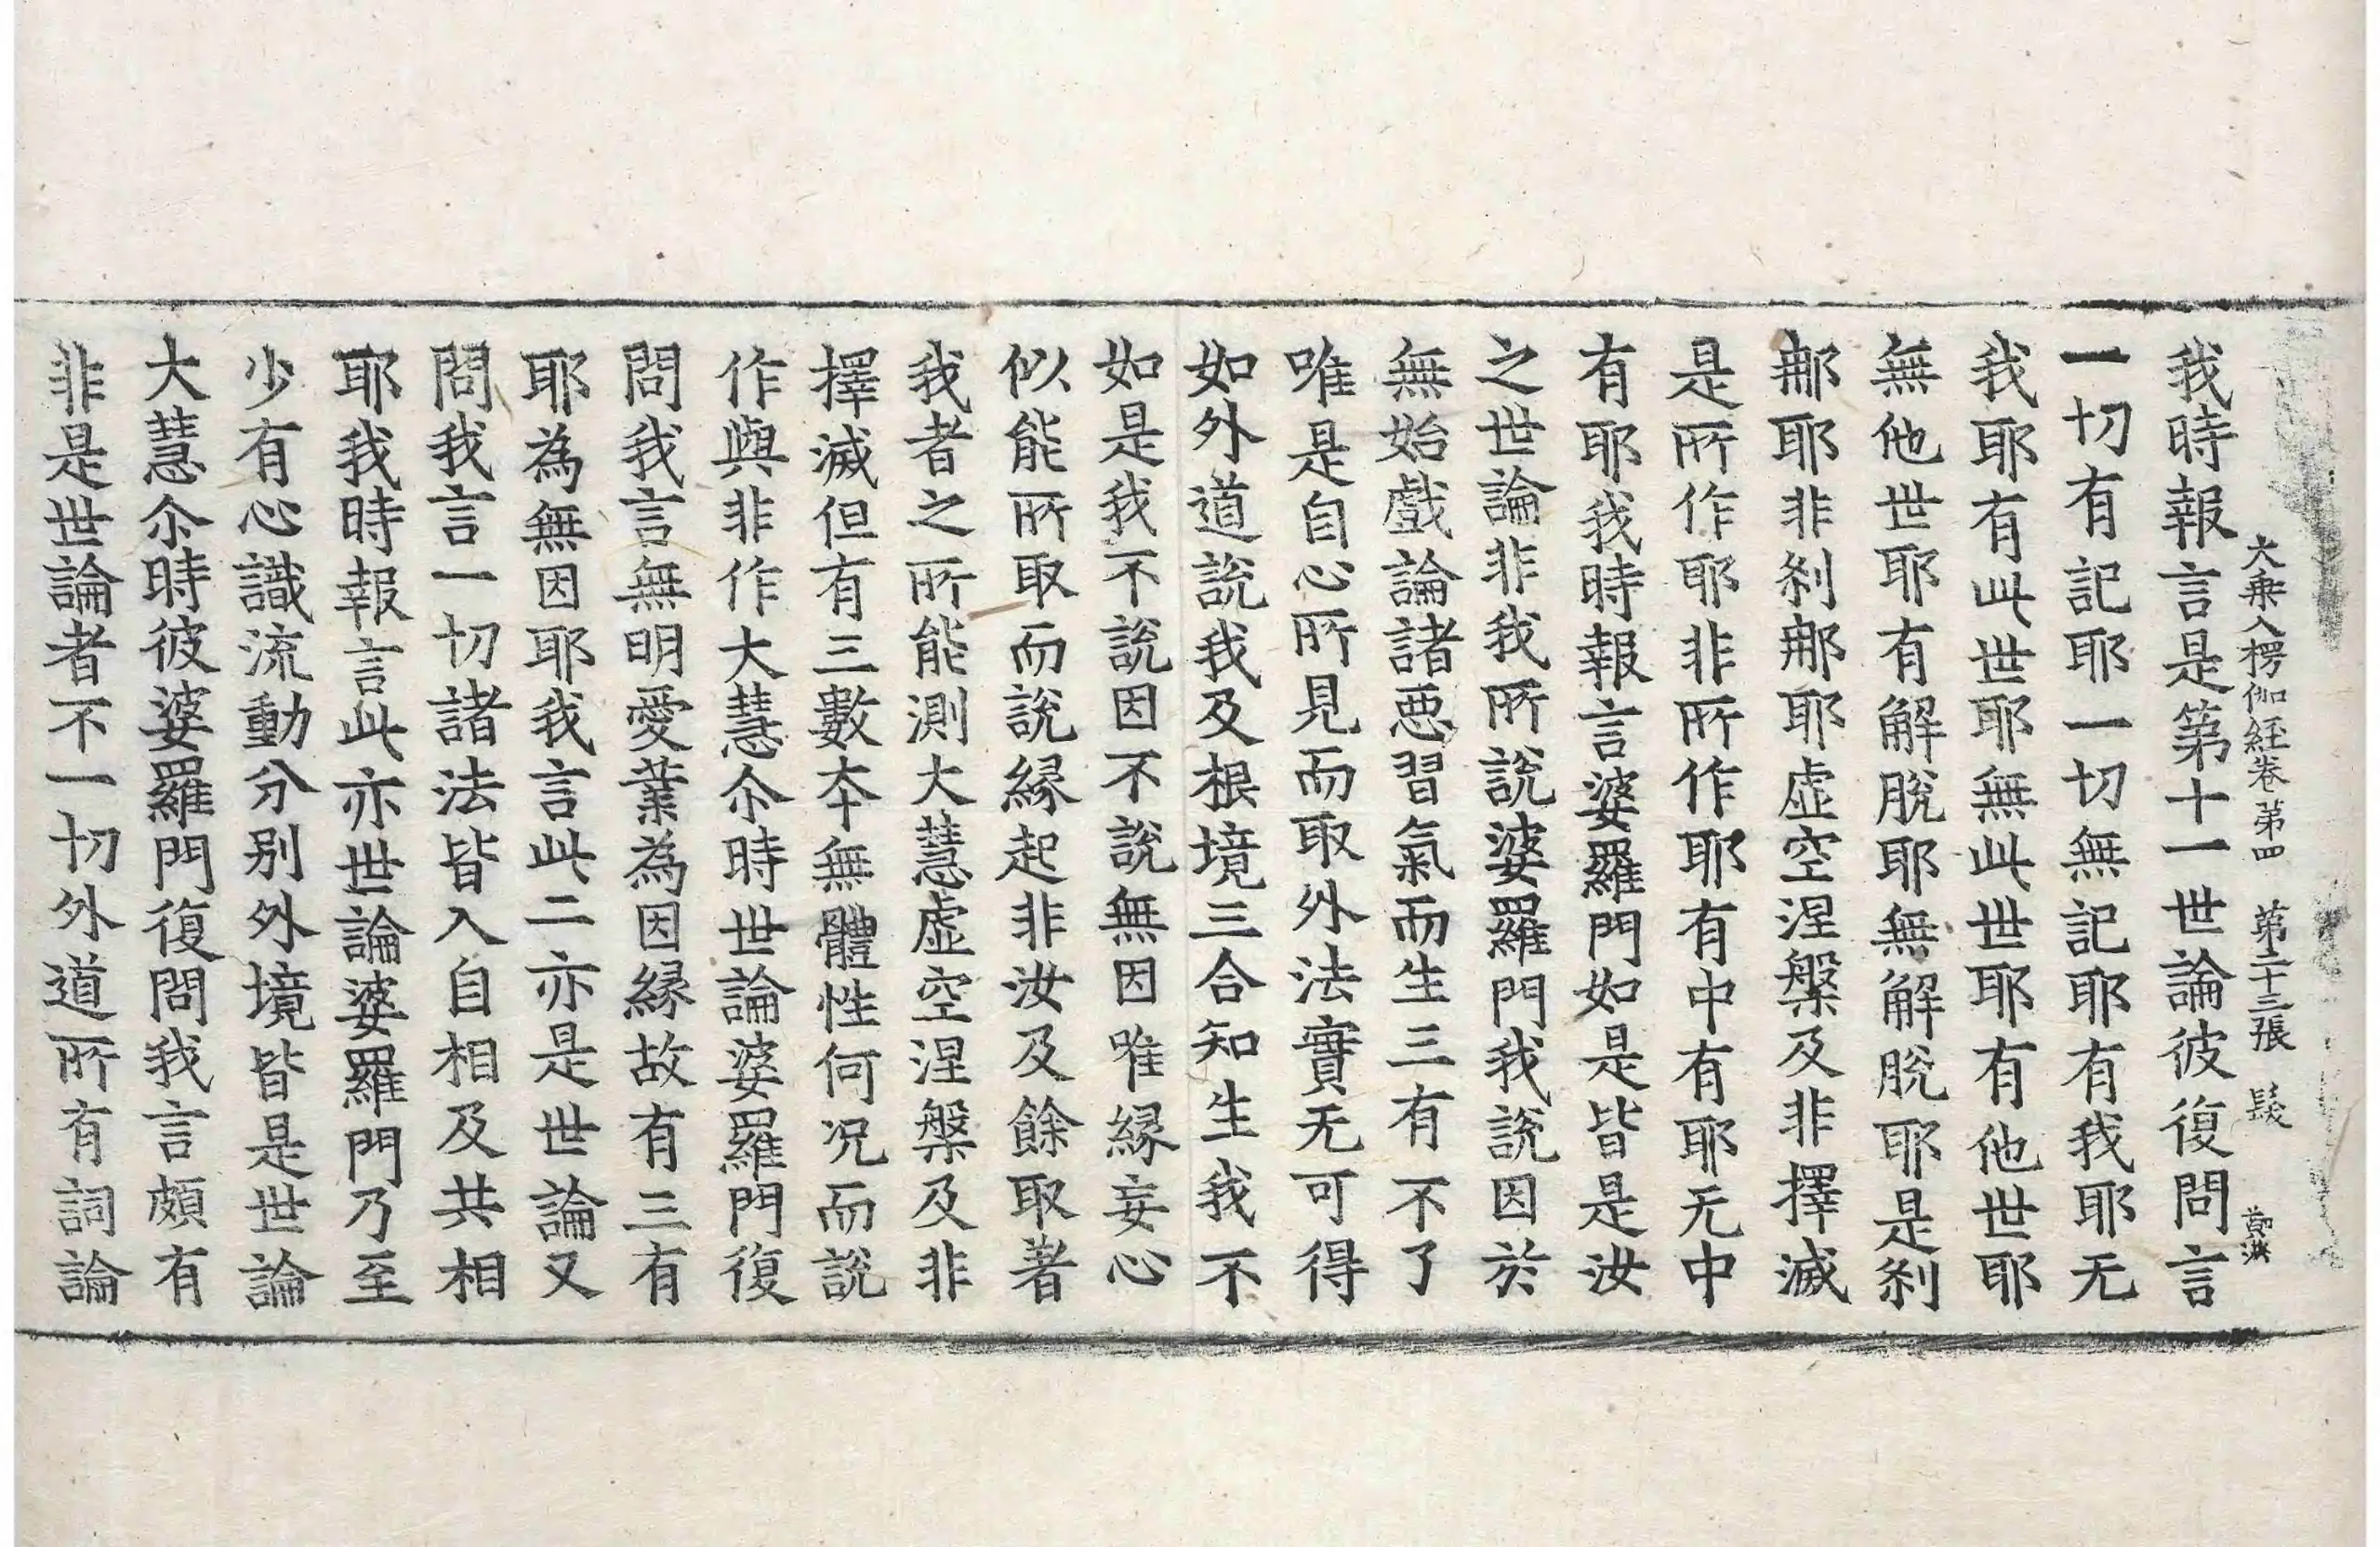 大乗入楞伽経卷第四 第二十三張 髮
我時報言是第十一世論彼復問言
一切有記耶一切無記耶有我耶无
我耶有此世耶無此世耶有他世耶
無他世耶有解脫耶無解脫耶是刹
那耶非刹那耶虛空涅槃及非擇滅
是所作耶非所作耶有中有耶无中
有耶我時報言婆羅門如是皆是汝
之世論非我所說婆羅門我說因於
無始戲論諸悪習氣而生三有不了
唯是自心所見而取外法實无可得
如外道說我及根境三合知生我不
如是我不說因不說無因唯縁妄心
似能所取而說縁起非汝及餘取著
我者之所能測大慧虛空涅槃及非
擇滅但有三數夲無體性何況而說
作與非作大慧尒時世論婆羅門復
問我言無明愛業為因縁故有三有
耶為無因耶我言此二亦是世論又
問我言一切諸法皆入自相及共相
耶我時報言此亦世論婆羅門乃至
少有心識流動分別外境皆是世論
大慧尒時彼婆羅門復問我言頗有
非是世論者不一切外道所有詞論